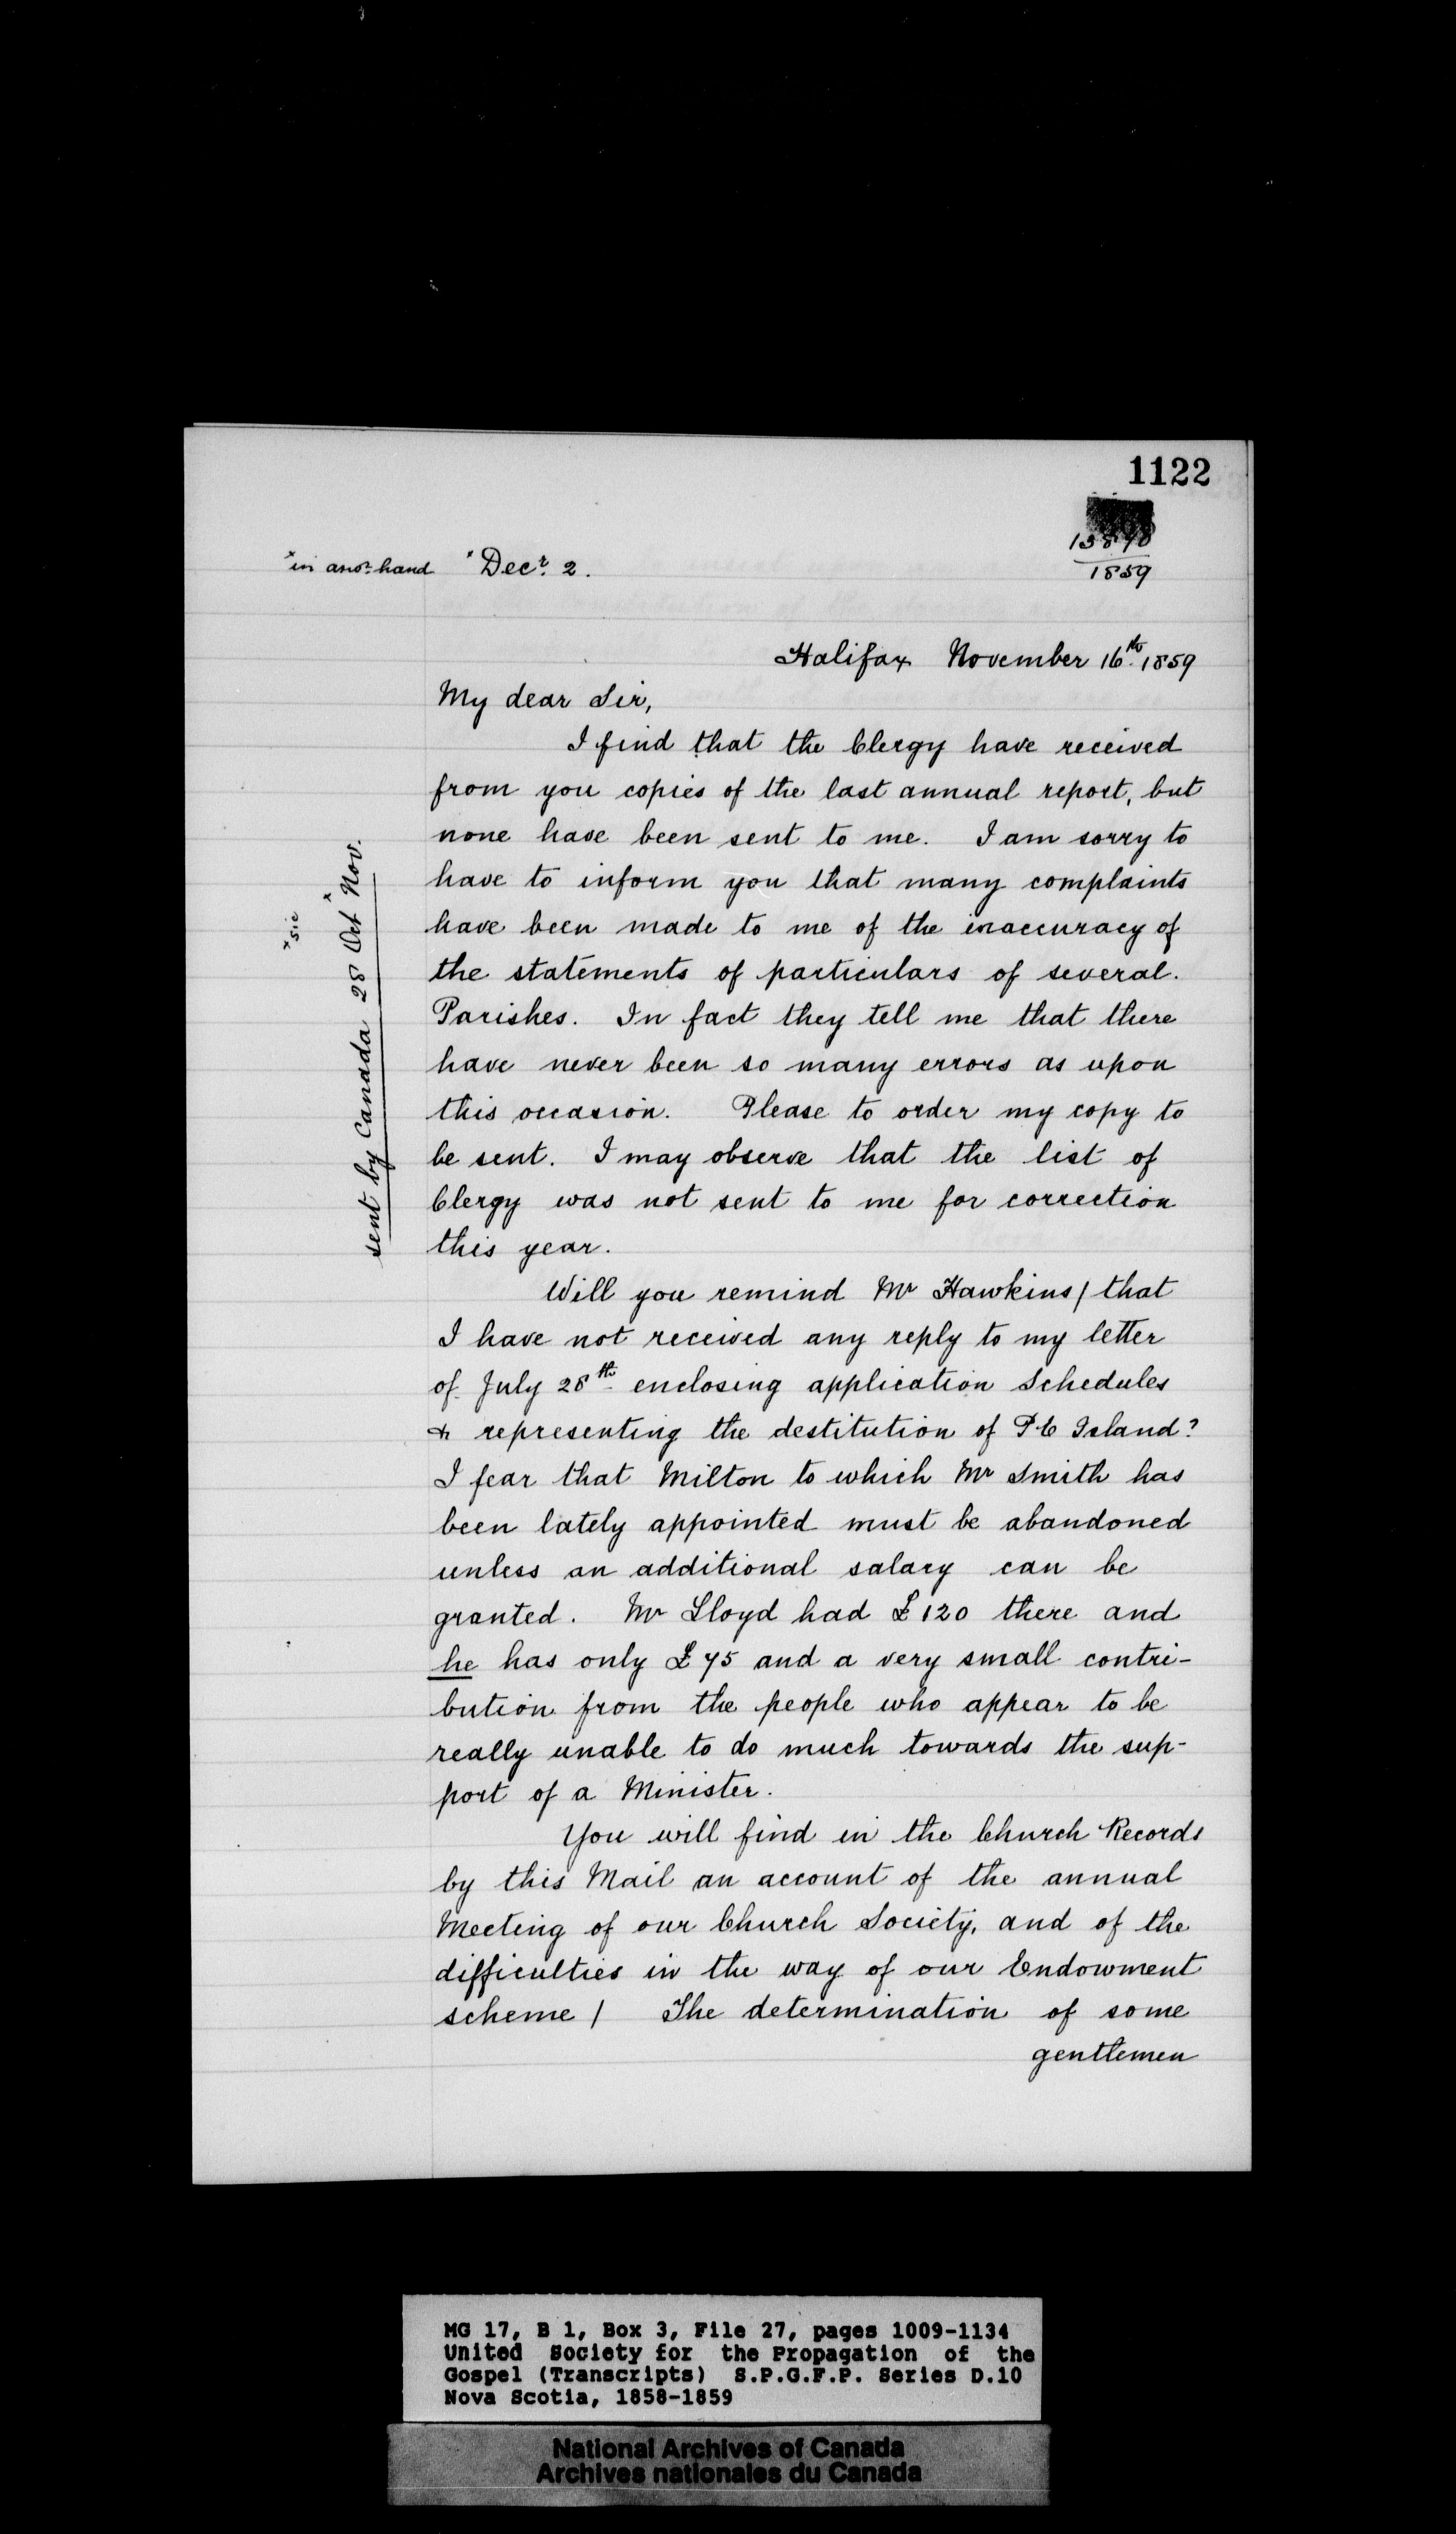 1122
1859
*in anor. hand *Decr. 2.
Halifax November 16th. 1859
My dear Sir,
I find that the Clergy have received
from you copies of the last annual report, but
none have been sent to me. I am sorry to
have to inform you that many complaints
have been made to me of the inaccuracy of
the statements of particulars of several.
Parishes. In fact they tell me that there
have never been so many errors as upon
this occasion. Please to order my copy to
be sent. I may observe that the list of
Clergy was not sent to me for correction
this year.
*sic
sent by Canada 28 Oct *Nov.
Will you remind Mr Hawkins/ that
I have not received any reply to my letter
of July 28th enclosing application Schedules
& representing the destitution of P.E Island?
I fear that Milton to which Mr Smith has
been lately appointed must be abandoned
unless an additional salary can be
granted. Mr Lloyd had £120 there and
he has only £75 and a very small contri-
bution from the people who appear to be
really unable to do much towards the sup-
port of a Minister.
You will find in the Church Records
by this Mail an account of the annual
Meeting of our Church Society, and of the
difficulties in the way of our Endowment
scheme/ The determination of some
gentlemen
MG 17, B 1, Box 3, File 27, pages 1009-1134
United Society for the Propagation of the
Gospel (Transcripts) S.P.G.F.P. Series D.10
Nova Scotia, 1858-1859
National Archives of Canada
Archives nationales du Canada